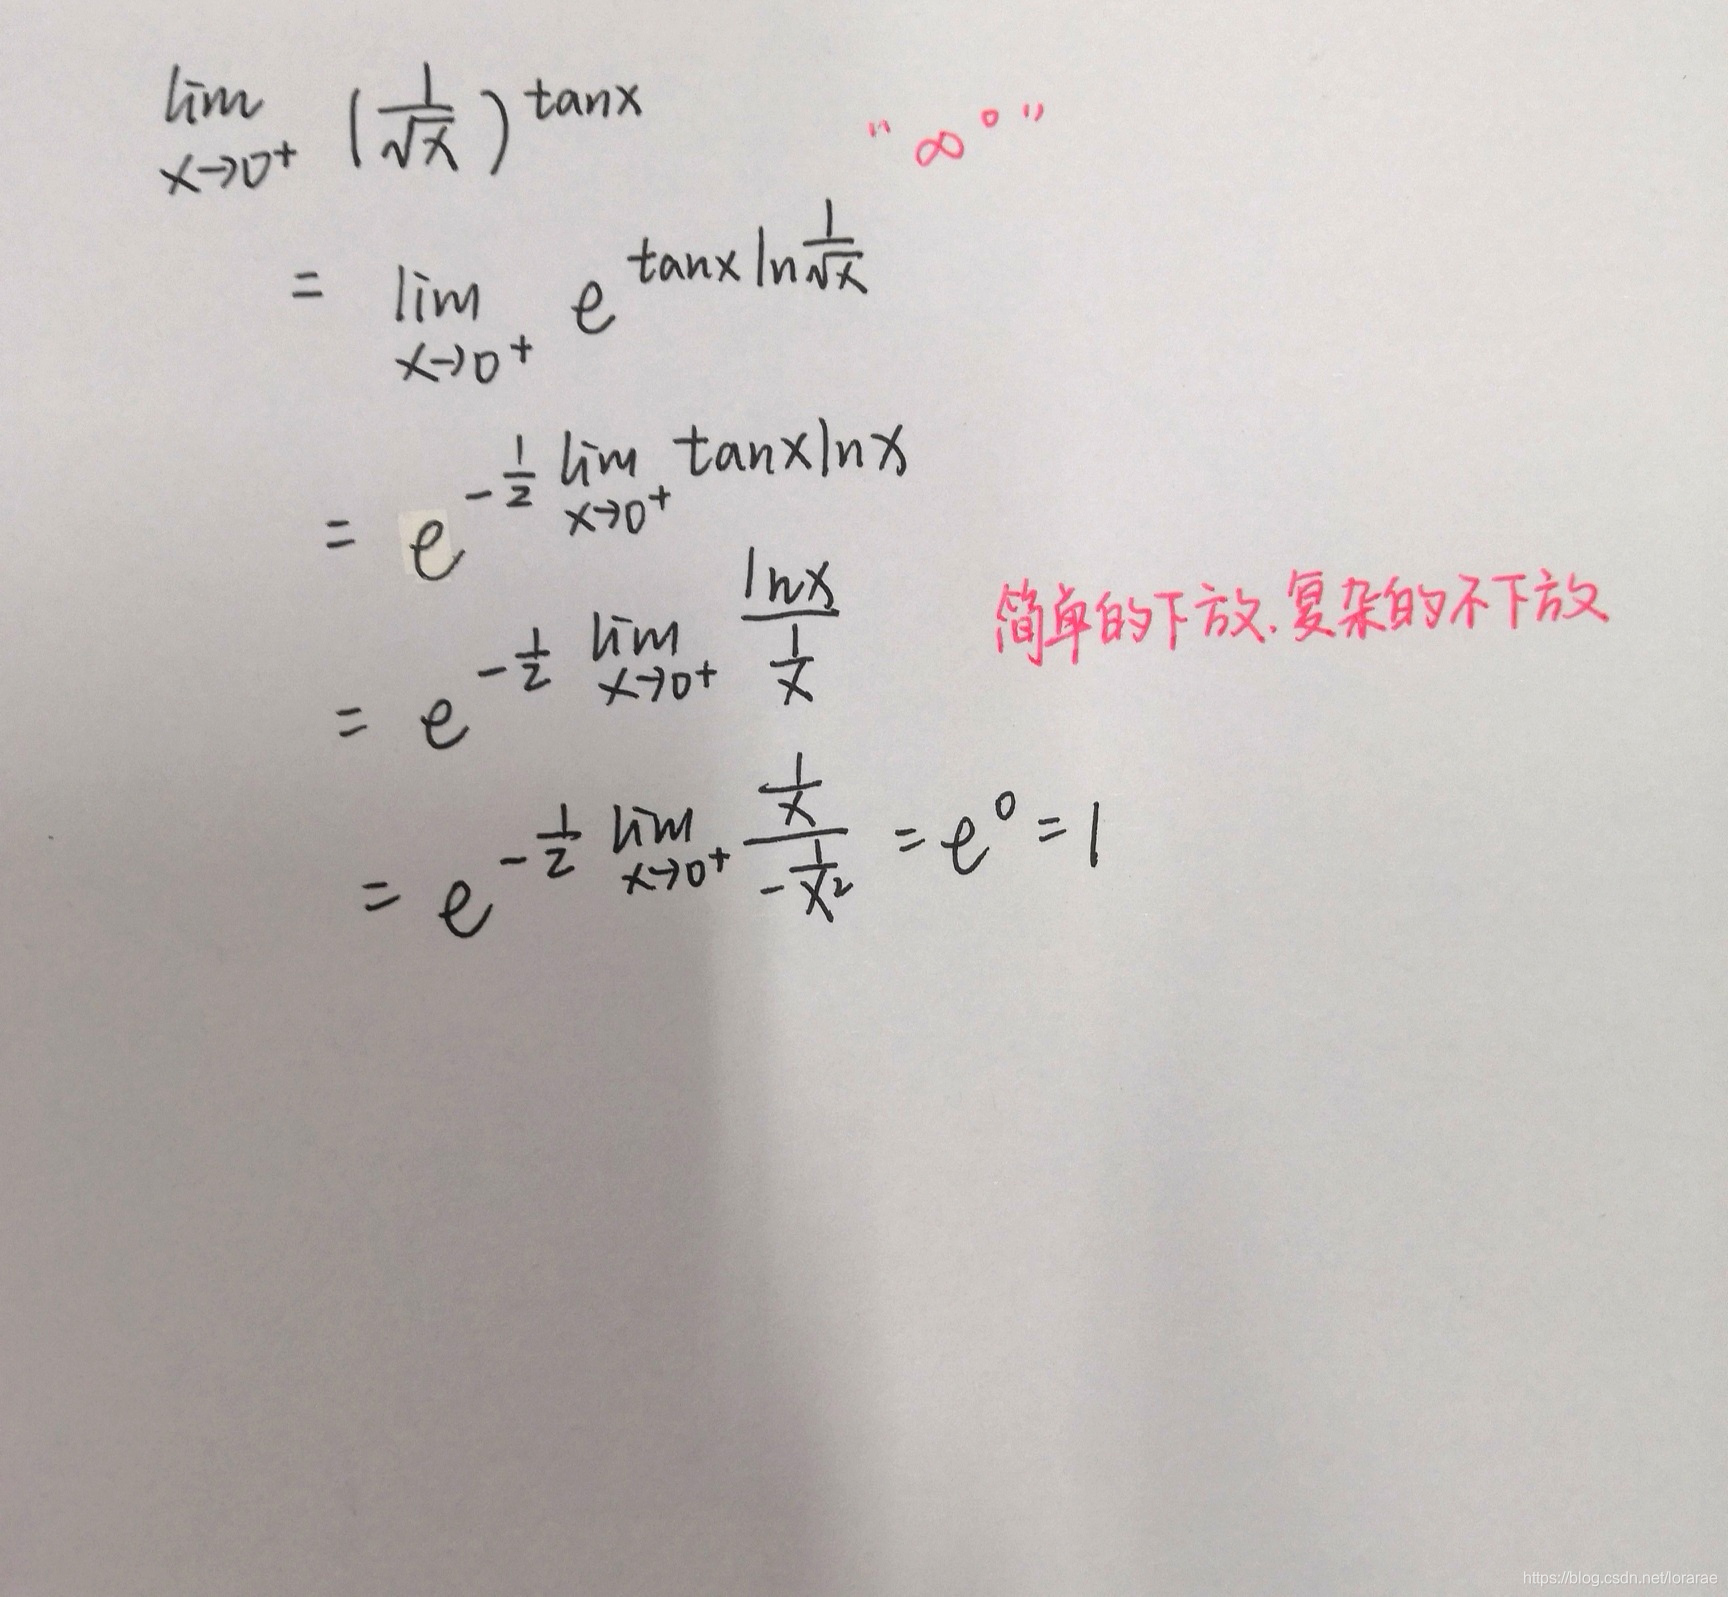 lim x→0⁺ (1/√x)^tanx “∞⁰”
= lim x→0⁺ e^(tanx ln 1/√x)
= e^(-1/2 lim x→0⁺ tanx lnx)
= e^(-1/2 lim x→0⁺ lnx/(1/x)) 简单的下放.复杂的不下放
= e^(-1/2 lim x→0⁺ (1/x)/(-1/x²)) = e⁰ = 1
https://blog.csdn.net/lorarae